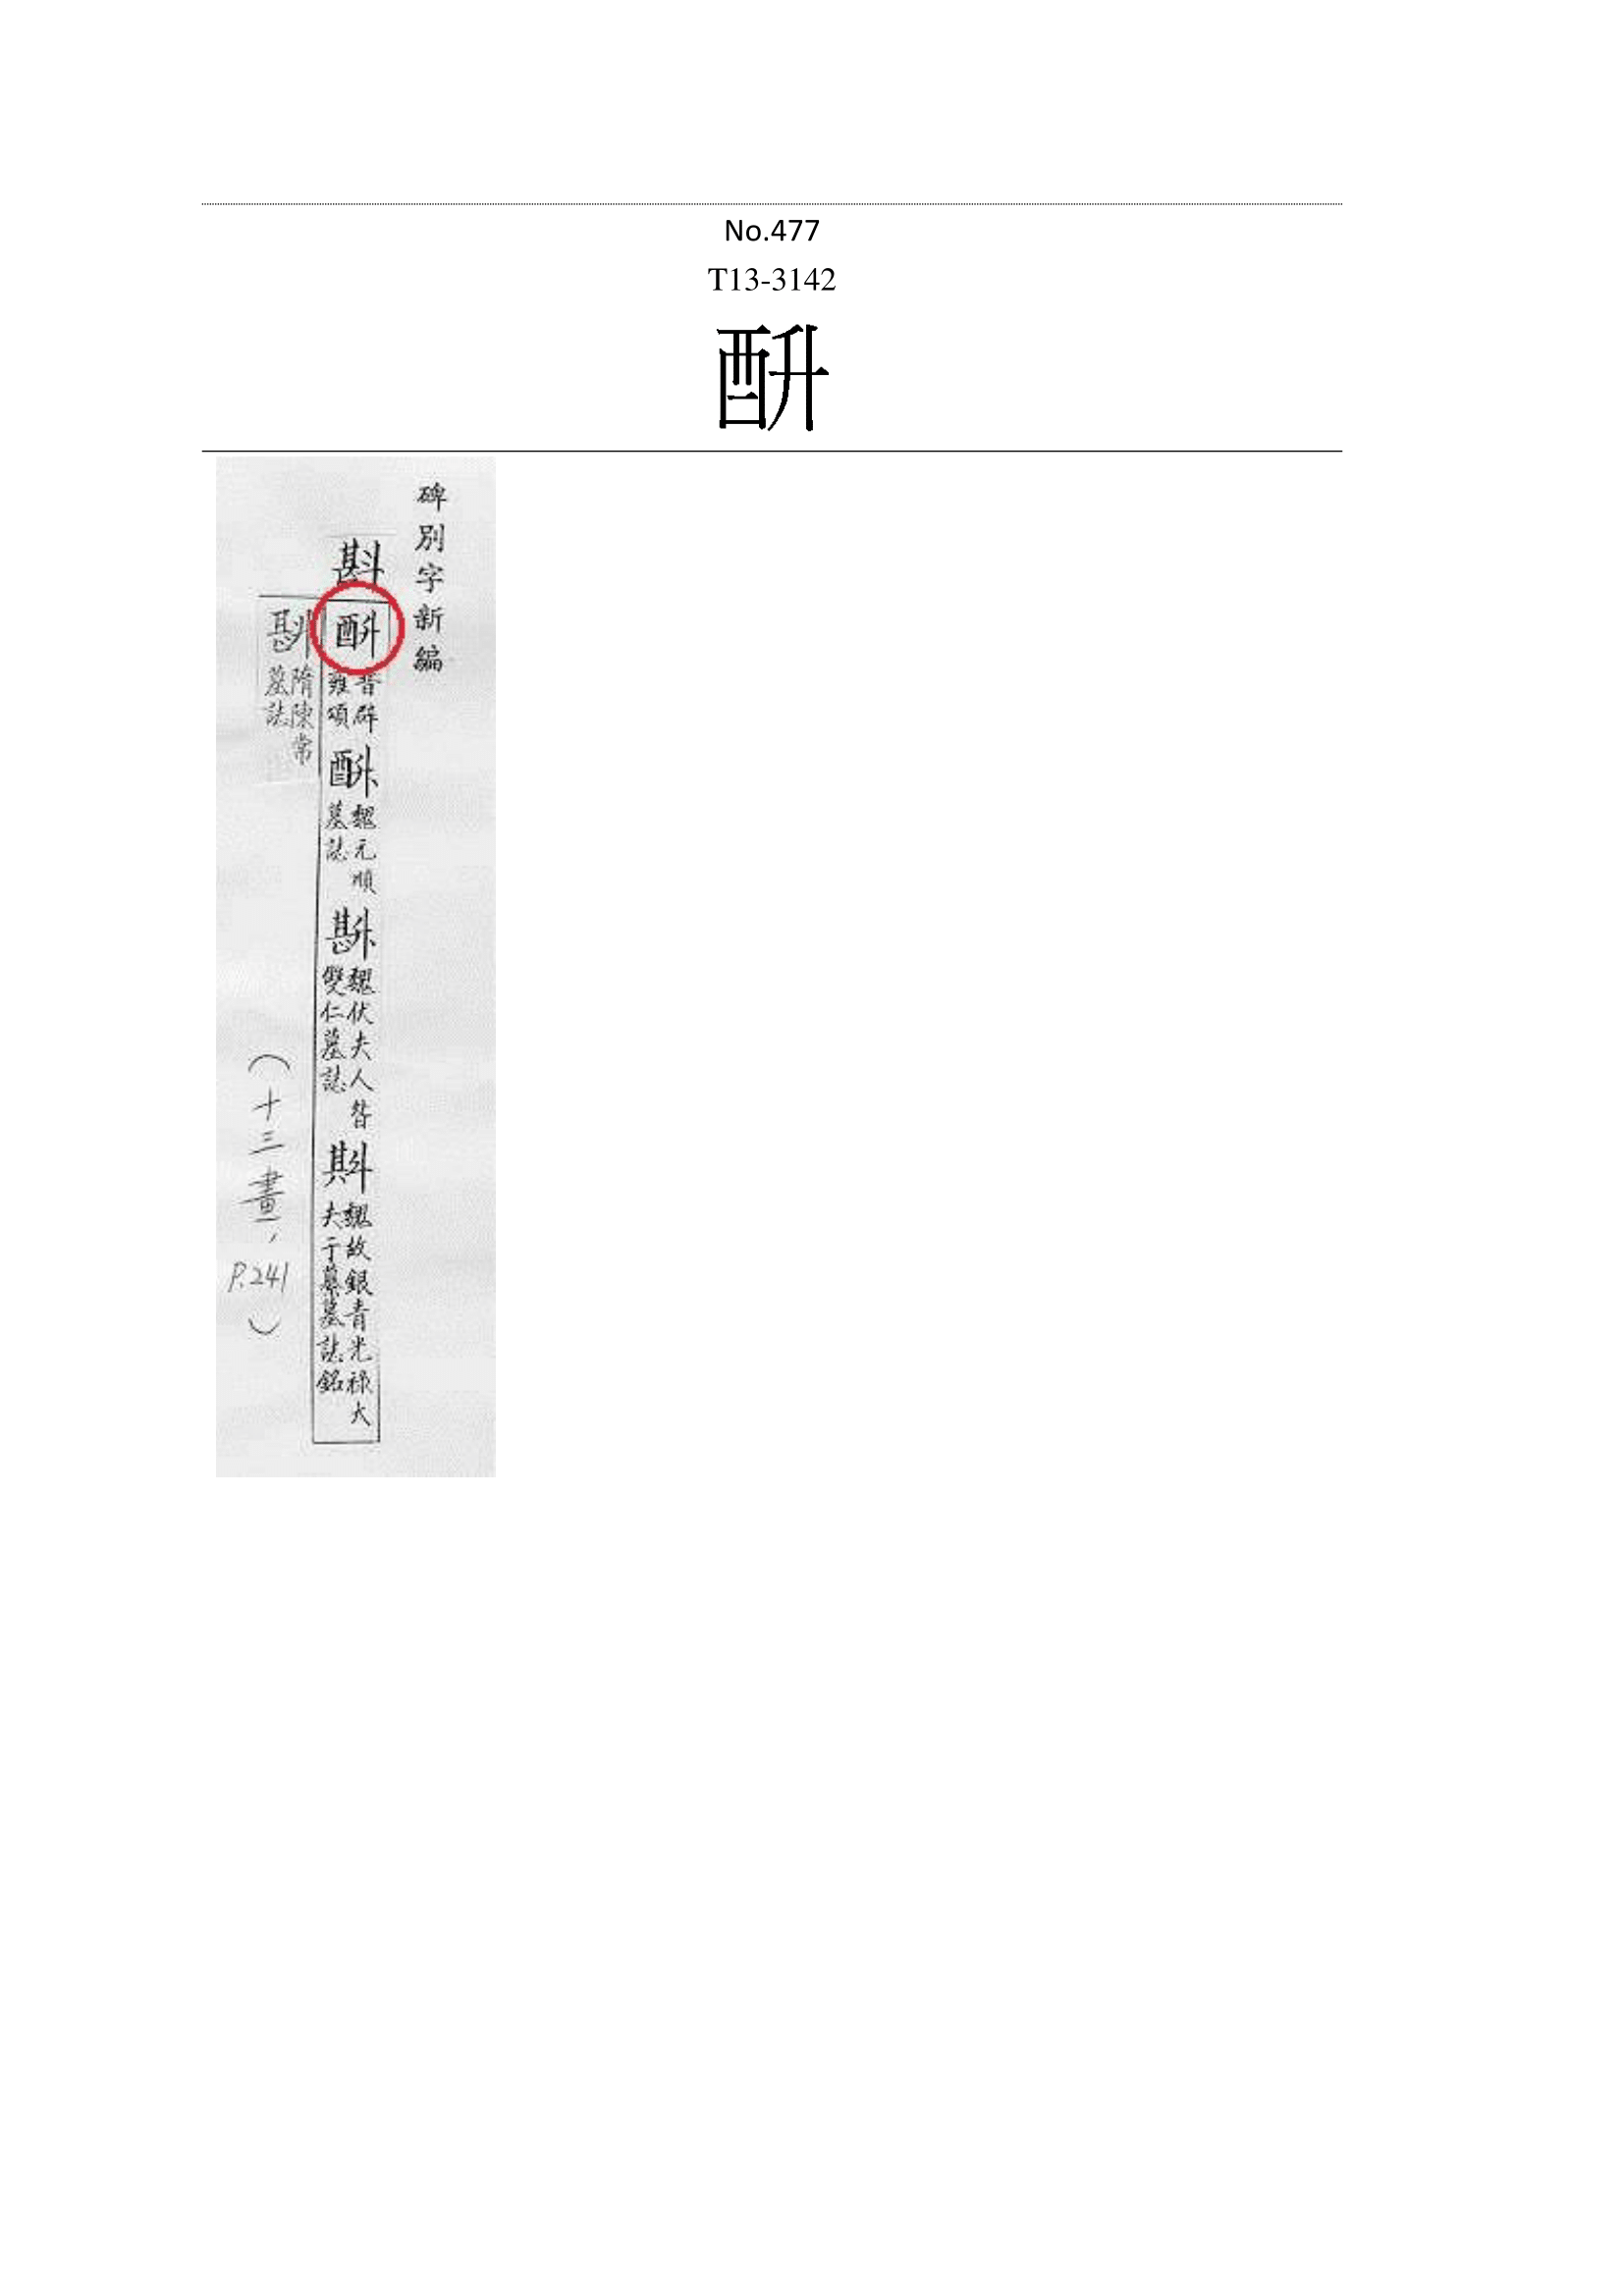 No.477
T13-3142
酙
碑別字新編
斟
酙 晉辟雍頌
魏元順墓誌
魏伏夫人昝雙仁墓誌
魏故銀青光祿大夫于纂墓誌銘
隋陳常墓誌
(十三畫, P.241)